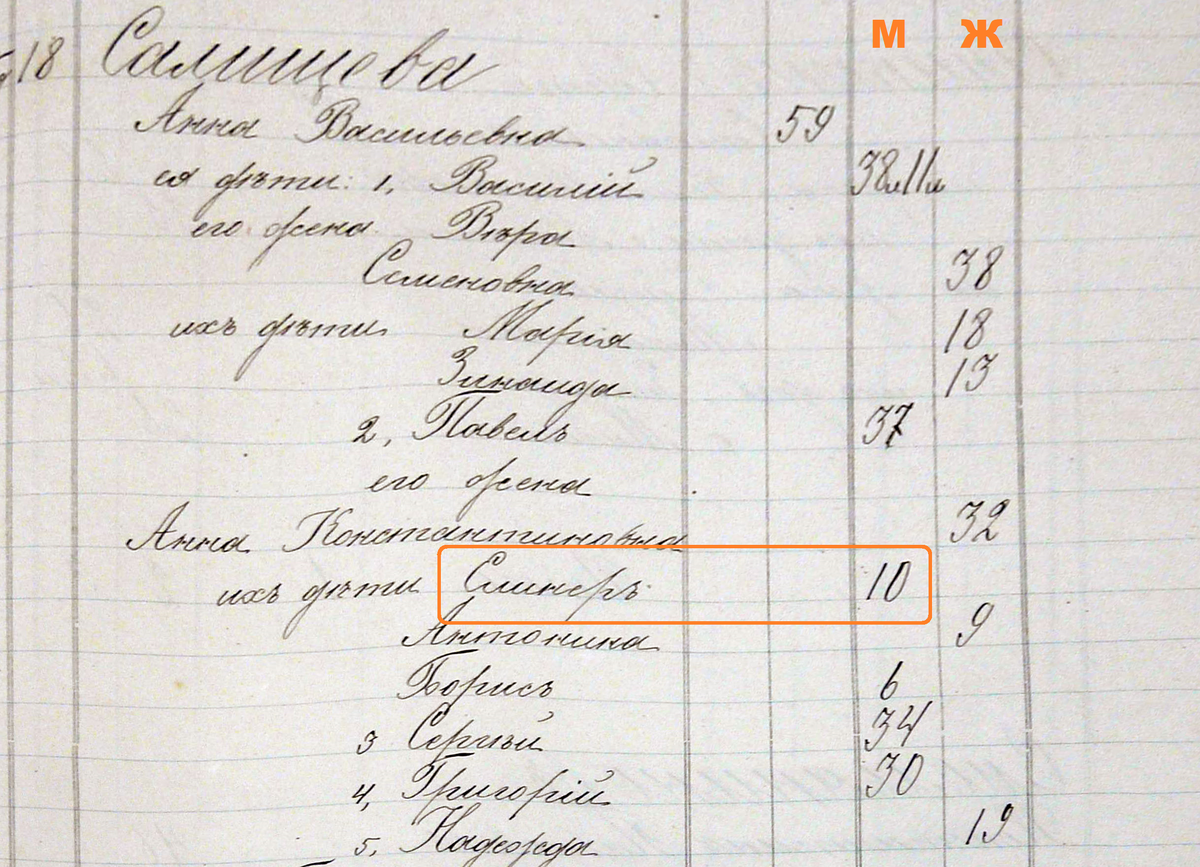 М Ж
18 Салищева
Анна Васильевна 59
ея дѣти: 1, Василій 38 л 11 м
его жена Вѣра
Семеновна 38
ихъ дѣти Марія 18
Зинаида 13
2, Павелъ 37
его жена
Анна Константиновна 32
ихъ дѣти 10
Антонина 9
Борисъ 6
3 Сергѣй 34
4, Григорій 30
5, Надежда 19